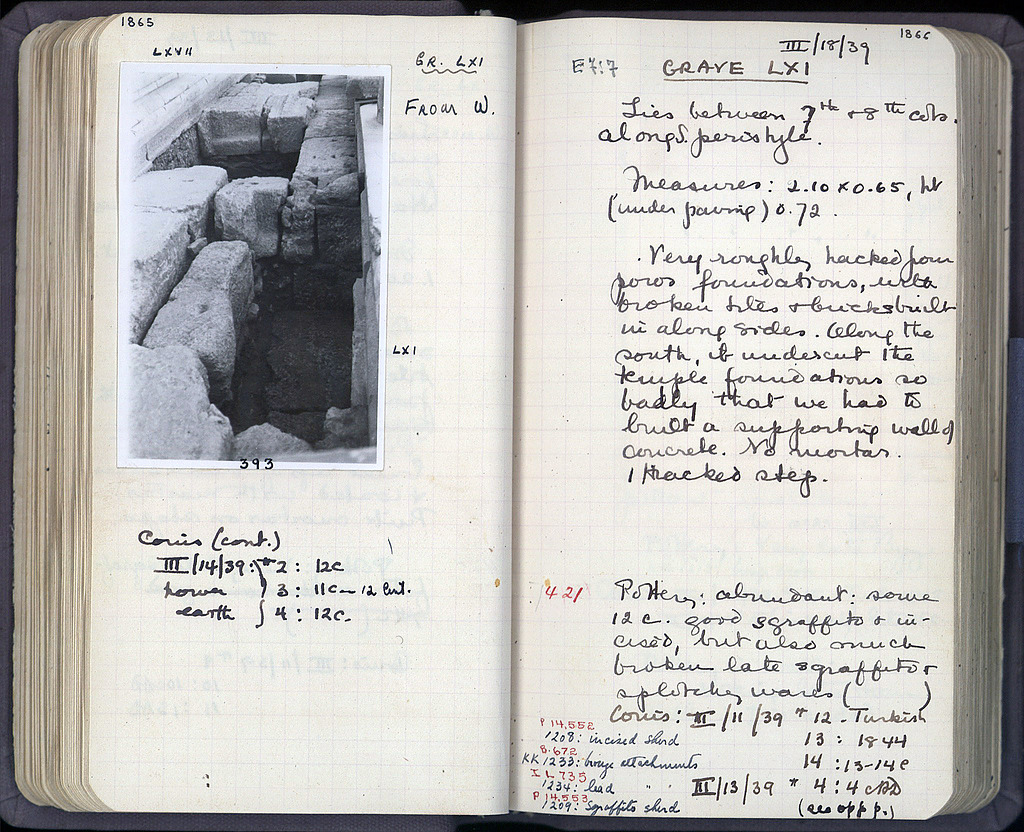 1865
LXVII
GR. LXI
FROM W.
LXI
393
Coins (cont.)
III/14/39: #2: 12c
power 3: 11c–12 Cent.
earth 4: 12c.
1866
III/18/39
E7:7 GRAVE LXI
Lies between 7th + 8th cols.
along S. peristyle.
Measures: 2.10 x 0.65, ht
(under paving) 0.72.
Very roughly hacked from
poros foundations, with
broken tiles + bricks built
in along sides. Along the
south, it undercut the
temple foundations so
badly that we had to
built a supporting wall of
concrete. No mortar.
1 hacked step.
421 Pottery: abundant: some
12 c. good sgraffito + in-
cised, but also much
broken late sgraffito +
splotchy wares ( )
Coins: III/11/39 #12 - Turkish
13 : 1844
14 : 13-14c
III/13/39 # 4 : 4c AD
(see opp p.)
P 14,552
1208: incised sherd
B.672
KK 1233: bronze attachments
IL 735
1234: lead " "
P 14,553
1209: sgraffito sherd